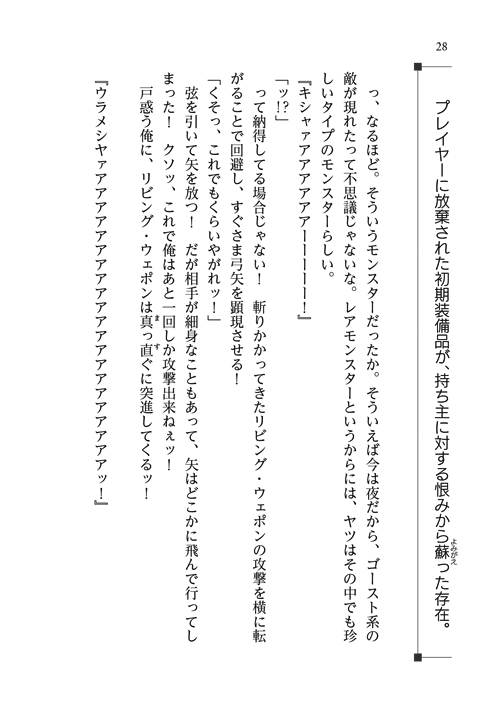 28
プレイヤーに放棄された初期装備品が、持ち主に対する恨みから蘇った存在。
っ、なるほど。そういうモンスターだったか。そういえば今は夜だから、ゴースト系の
敵が現れたって不思議じゃないな。レアモンスターというからには、ヤツはその中でも珍
しいタイプのモンスターらしい。
『キシャァアアアアアアーーーーー！』
「ッ!?」
って納得してる場合じゃない！　斬りかかってきたリビング・ウェポンの攻撃を横に転
がることで回避し、すぐさま弓矢を顕現させる！
「くそっ、これでもくらいやがれッ！」
弦を引いて矢を放つ！　だが相手が細身なこともあって、矢はどこかに飛んで行ってし
まった！　クソッ、これで俺はあと一回しか攻撃出来ねぇッ！
戸惑う俺に、リビング・ウェポンは真っ直ぐに突進してくるッ！
『ウラメシヤァアアアアアアアアアアアアアアアアアアアアッ！』